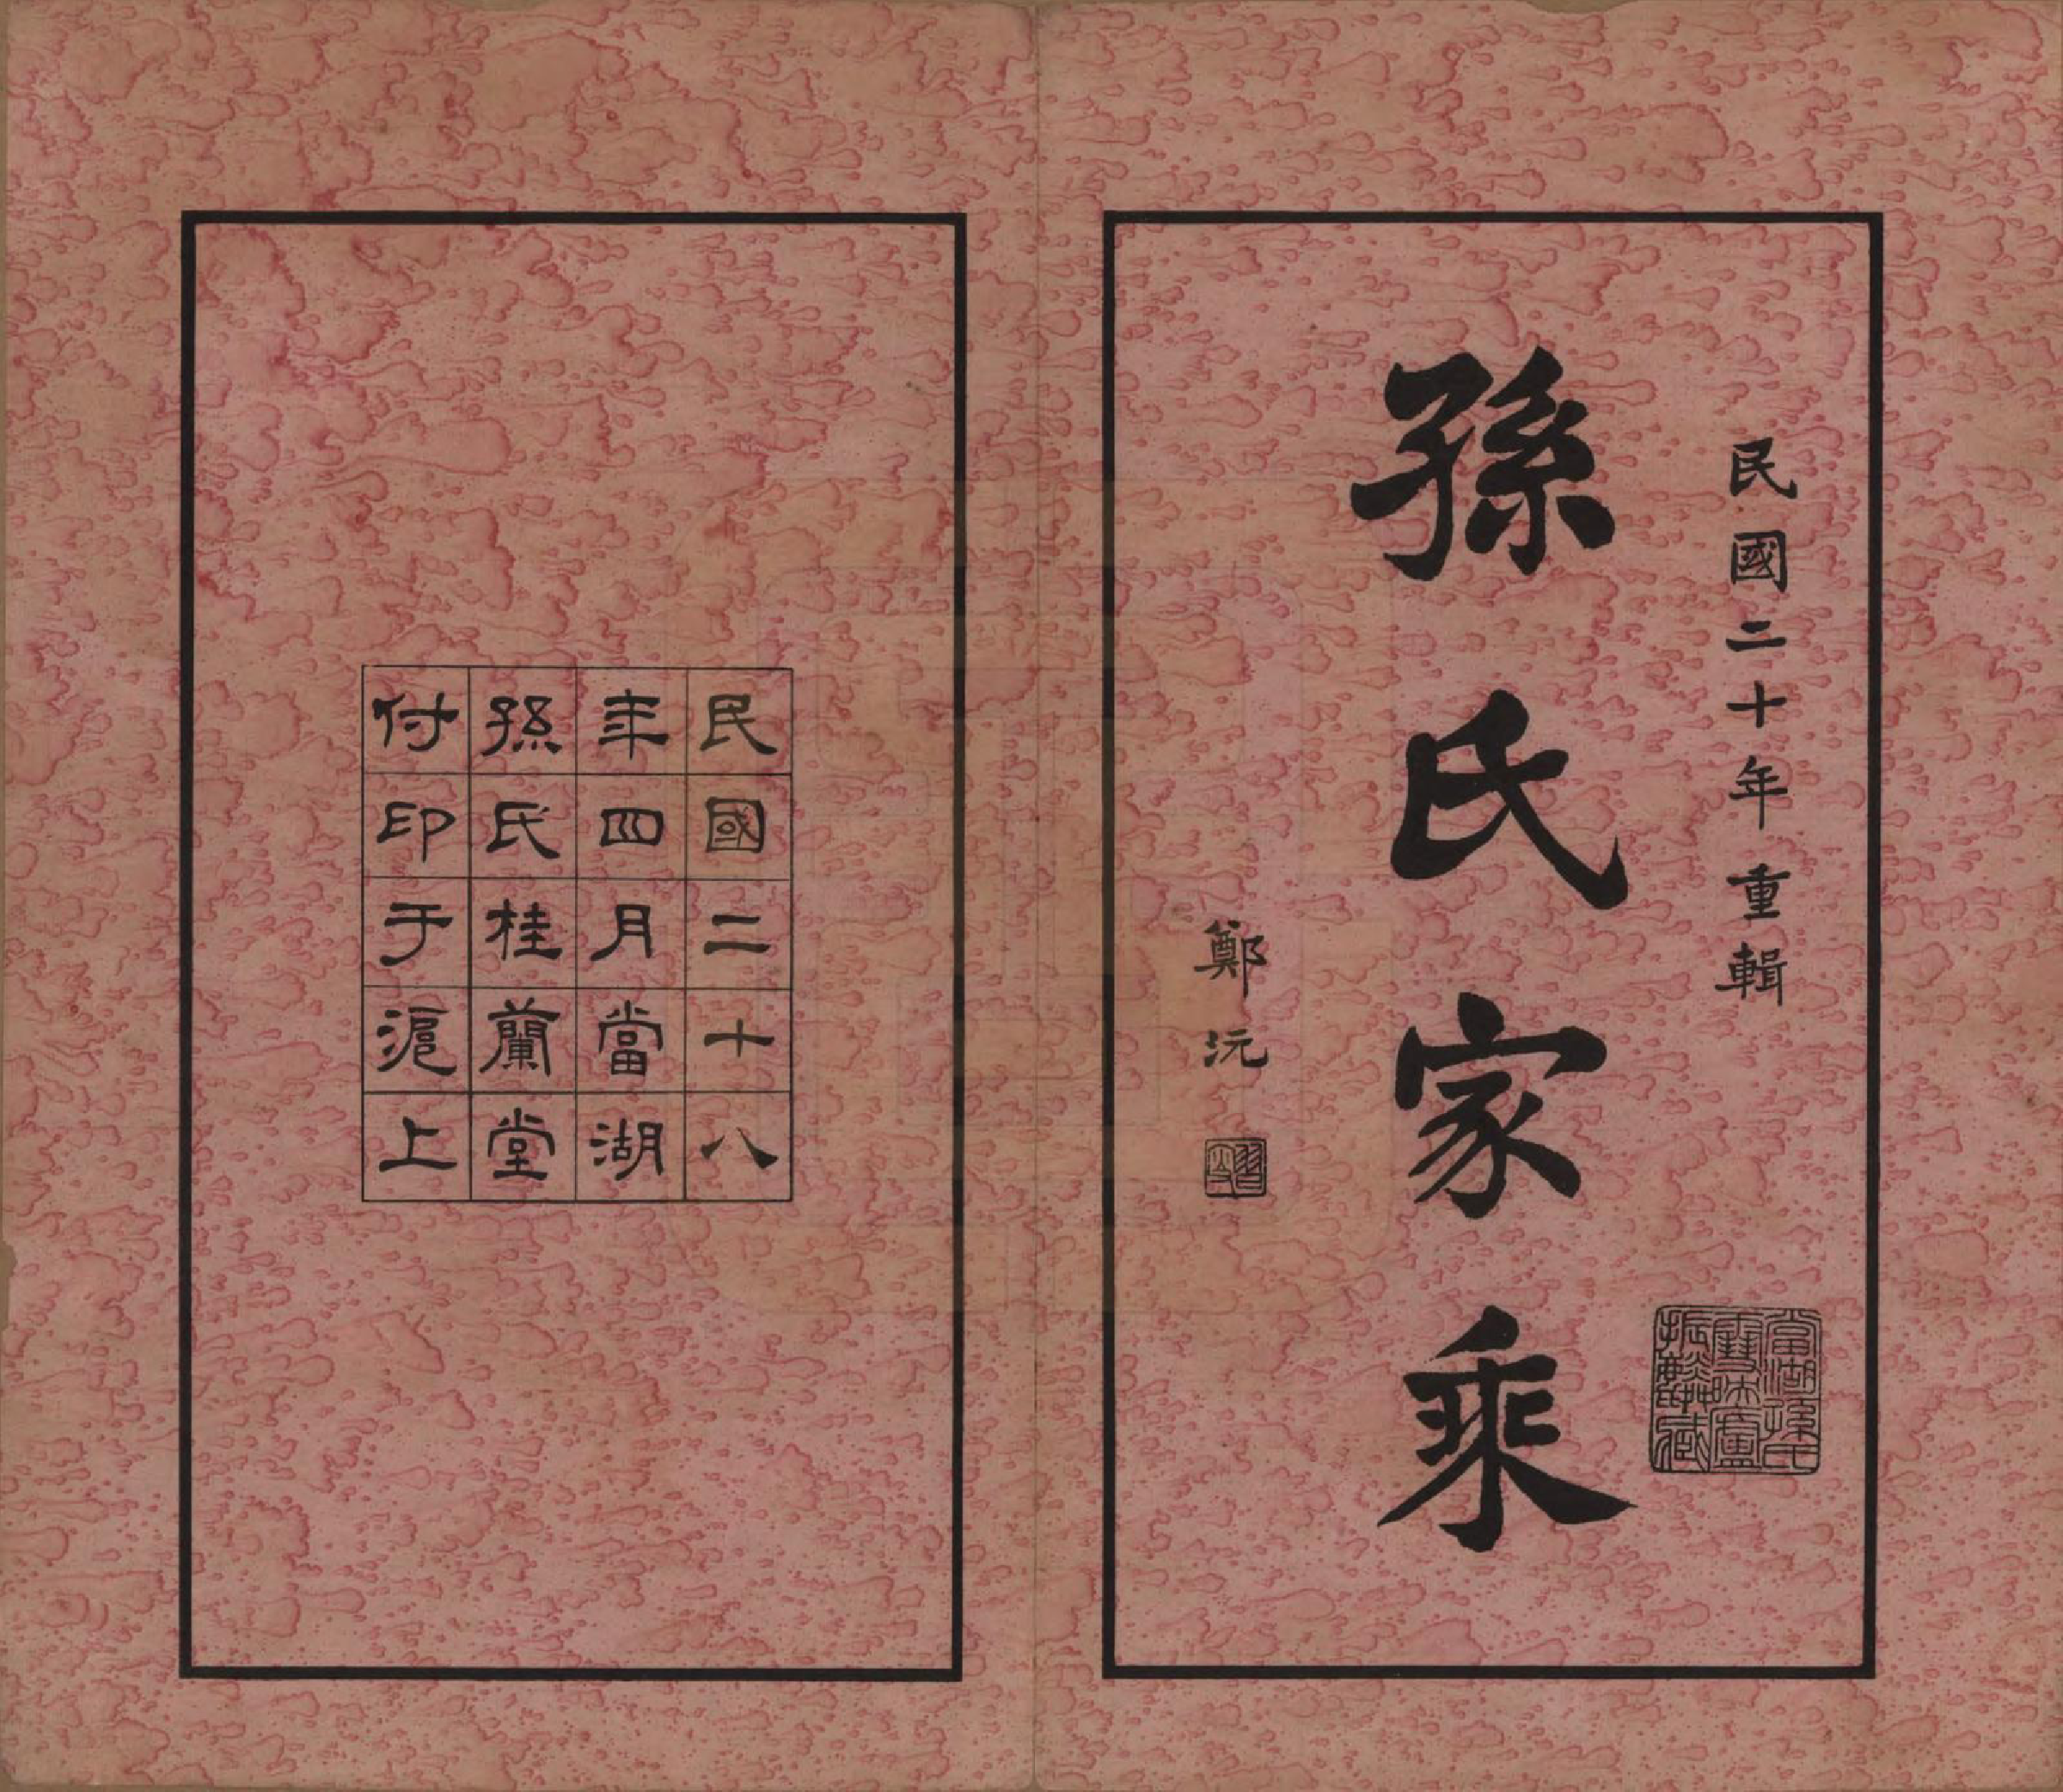 民國二十年重輯
孫氏家乘
鄭沅
當湖孫氏
雪映廬
振麟藏
民國二十八
年四月當湖
孫氏桂蘭堂
付印于滬上